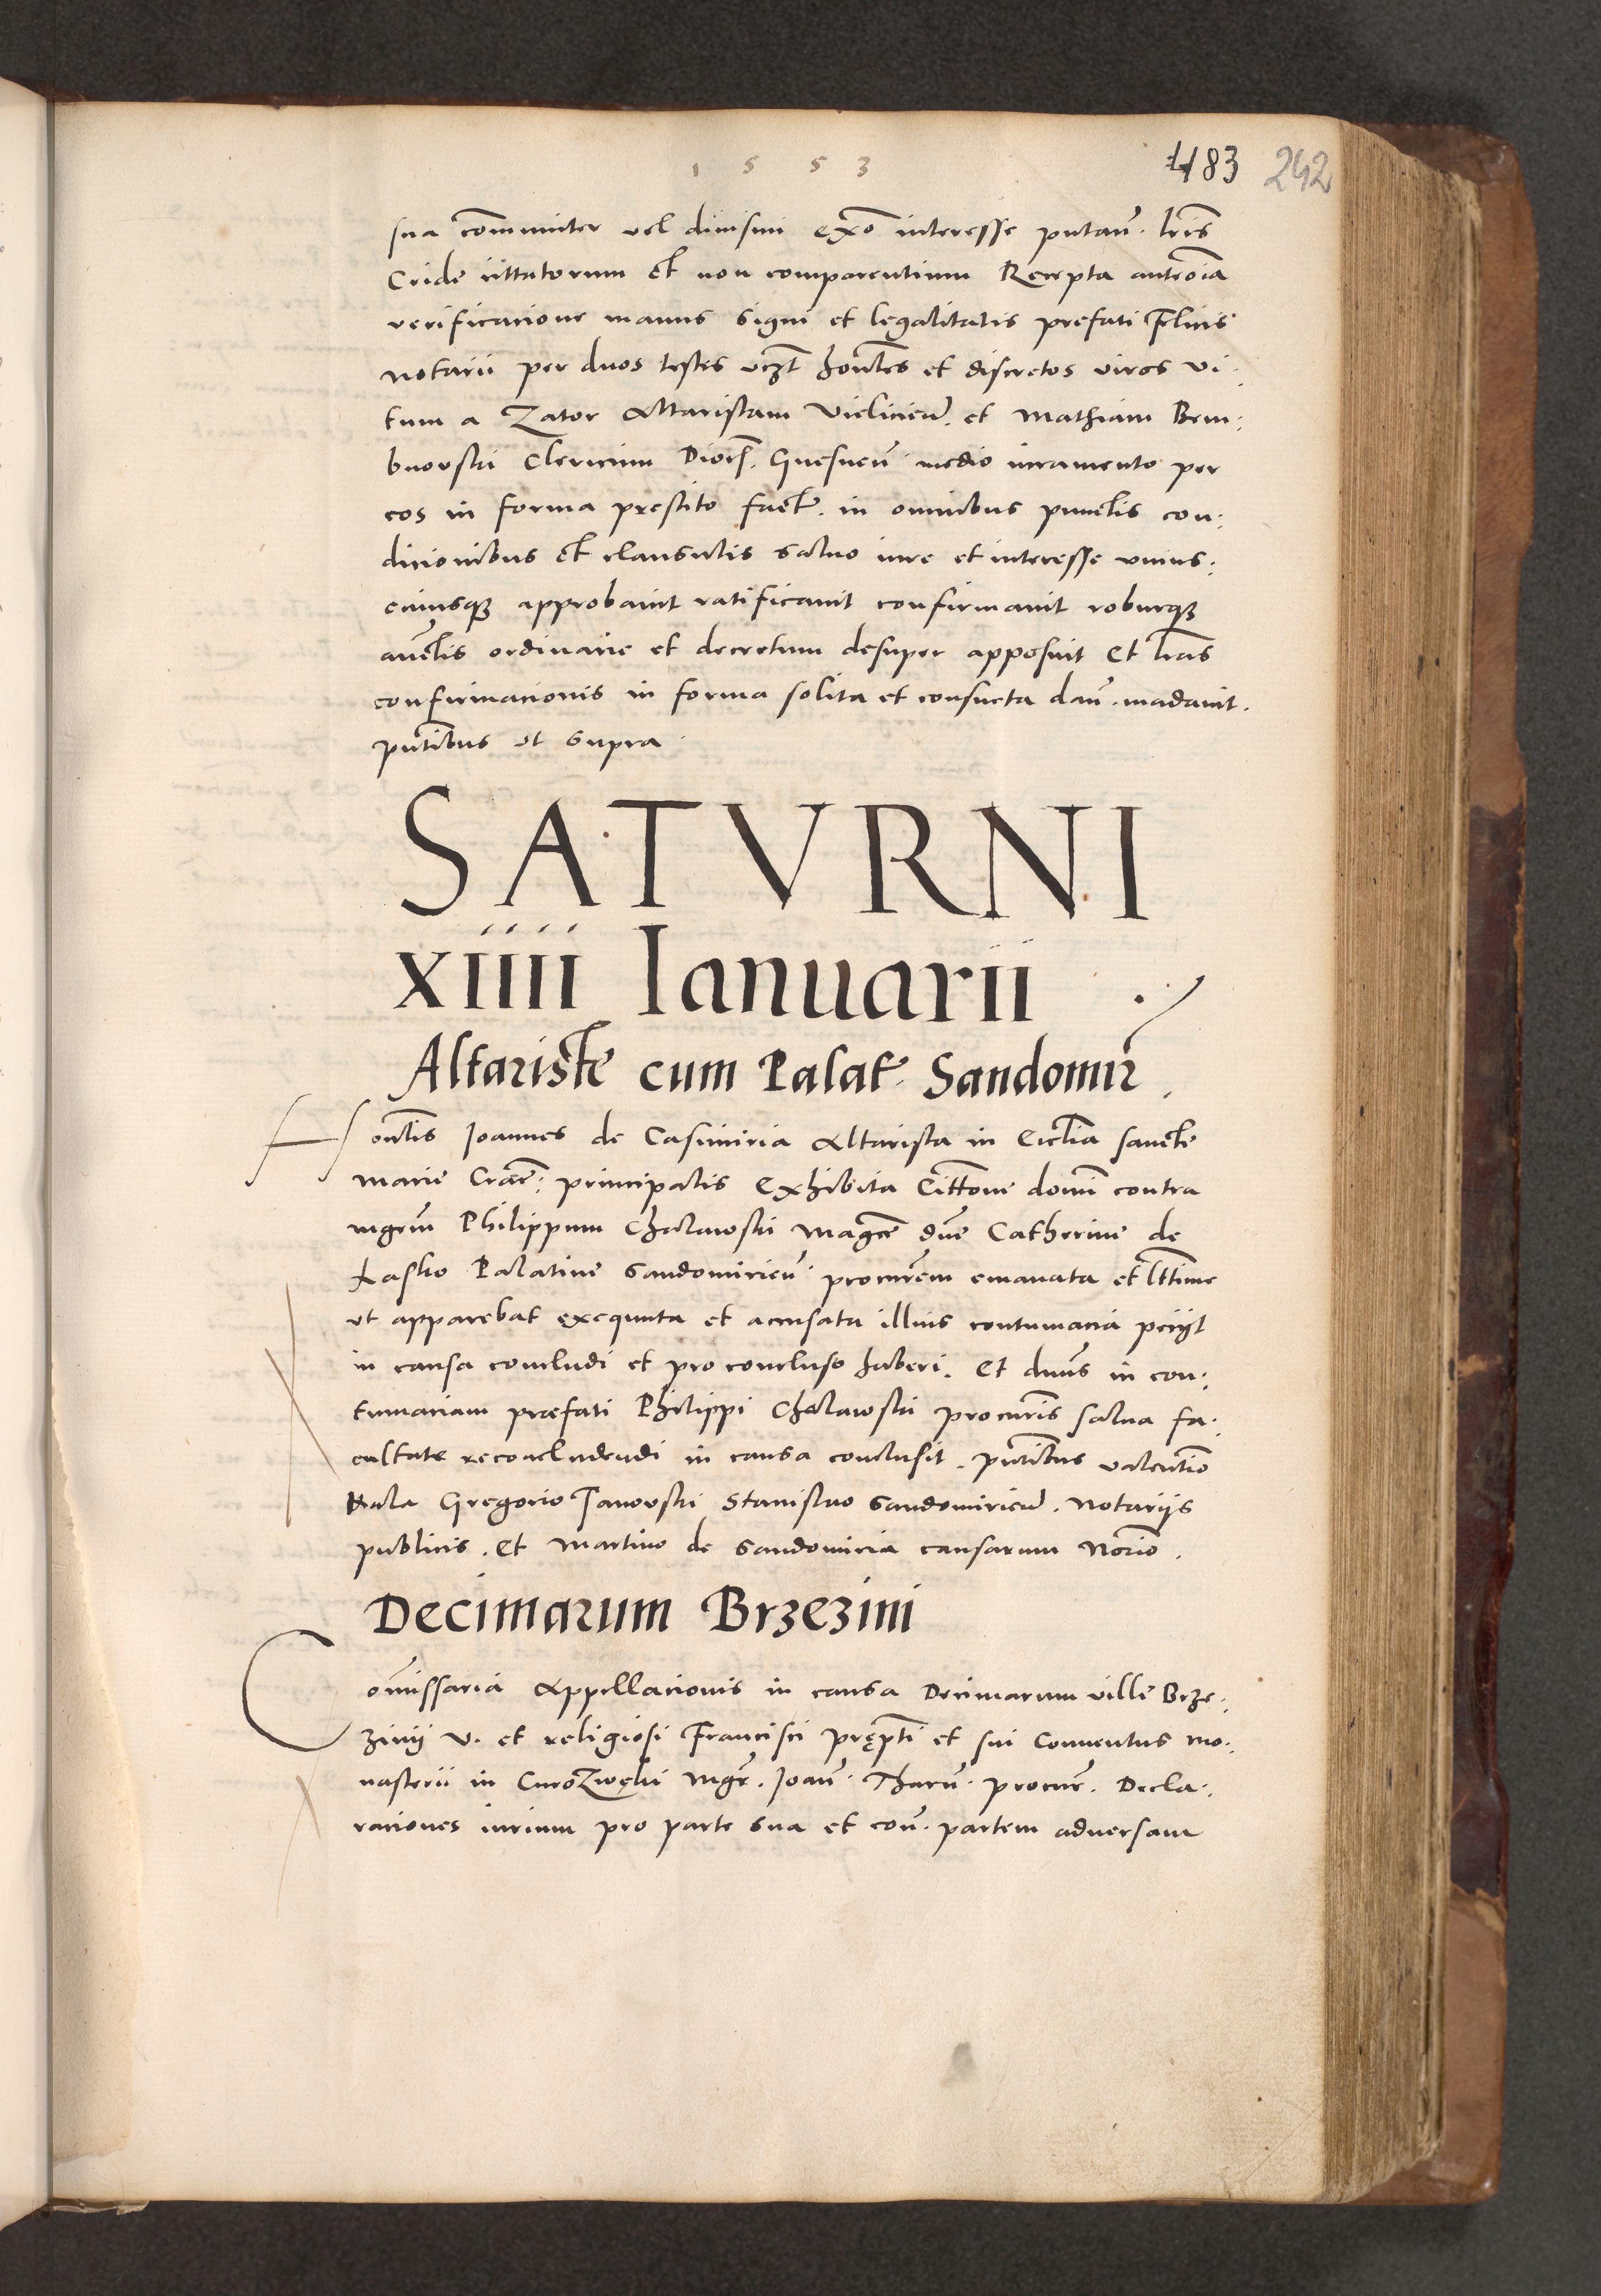 1553
483 242
sua com̄uniter vel diuisim exo͞ interesse putan͂. Lr͞is
Cride cittatorum et non comparentium Recepta anteo͞ia
verificacione manus signi et legalitatis prefati Felicis
notarii per duos testes vczt hon͞les et discretos viros Vi:
tum a Zator Altaristam Vielicien͂. et Mathiam Brm:
bnovski Clericum Dioc͞. Gnesnen͂ medio iuramento per
eos in forma prestito fact͞e. in omnibus punctis con:
dicionibus et clausulis saluo iure et interesse vnius:
cuiusqȝ approbauit ratificauit confirmauit roburqȝ
auct͞is ordinarie et decretum desuper apposuit Et lr͞as
confirmacionis in forma solita et consueta dan͂. madauit.
pn͞tibus vt supra.
SATVRNI
xiiii Ianuarii
Altariste cum Palat͞. Sandomir͂.
Hon͞lis Joannes de Casimiria Altarista in Eccl͞ia sancte
Marie Crac͞: principalis Exhibita Citt͞one domi͞ contra
mgrm͞ Philippum Chalawski Magc͞e dn͞e Catherine de
Lasko Palatine Sandomirien͂. procur͞em emanata et ltt͞ime
vt apparebat exequuta et accusata illius contumacia peciit
in causa concludi et pro concluso haberi. Et dn͞us in con:
tumaciam præfati Philippi Chalawski procur͞is salua fa:
cultate reconcludendi in causa conclusit. pn͞tibus valent͞io
Rala Gregorio Janovski Stanislao Sandomirien͂. Notariis
publicis. Et Martino de Sandomiria causarum No͞rio.
Decimarum Brzezini
Com͞issaria Appellacionis in causa Decimarum ville Brze:
zinij V. et religiosi Francisci Pręp͞ti et sui Conuentus mo:
nasterii in Curozwęki Mgr͞. Joan͂. Tharn͂. procur͞. Decla:
raciones iurium pro parte sua et con͂. partem aduersam